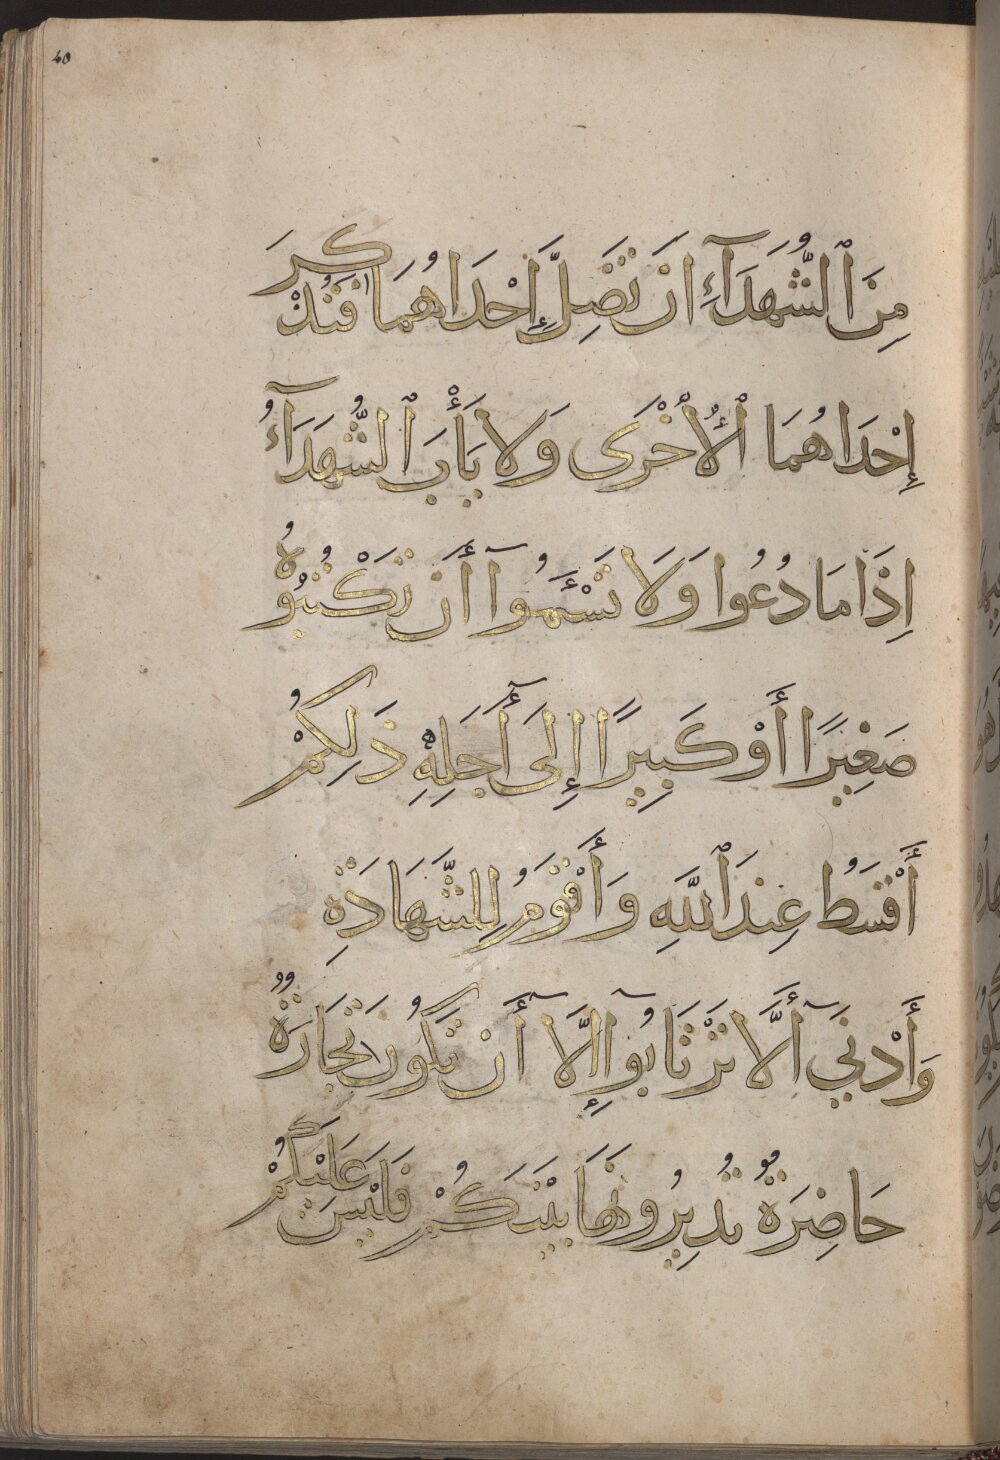 40
مِنَ ٱلشُّهَدَآءِ انَ تَضِلَّ إِحْدَاهُمَا فَتُذْكِرَ
إِحْدَاهُمَا ٱلْأُخْرَى وَلَا يَأْبَ ٱلشُّهَدَآءُ
اِذَا مَا دُعُوا وَلَا تَسْئَمُوآ أَن تَكْتُبُوهُ
صَغِيرًا أَوْ كَبِيرًا إِلَىٓ أَجَلِهِ ذَلِكُمْ
أَقْسَطُ عِندَ ٱللَّهِ وَأَقْوَمُ لِلشَّهَادَةِ
وَأَدْنَىٓ ألَّا تَرْتَابُوٓا إِلَّآ أَن تَكُونَ تِجَارَةٌ
حَاضِرَةٌ تُدِيرُونَهَا بَيْنَكُمْ فَلَيْسَ عَلَيْكُمْ